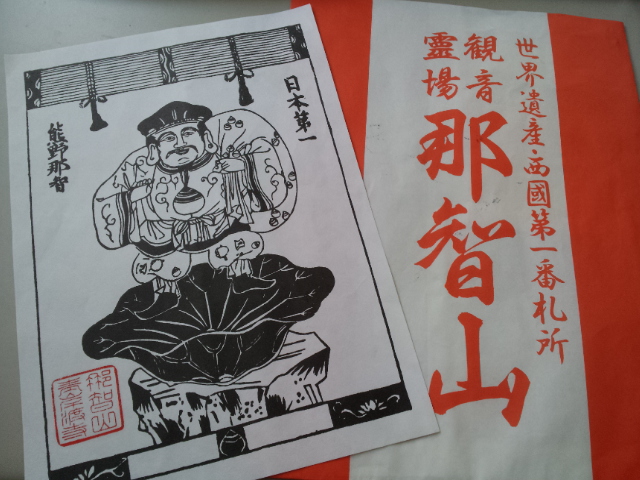 日本第一
熊野那智
那智山
青岸渡寺
世界遺産・西國第一番札所
観音
霊場
那智山